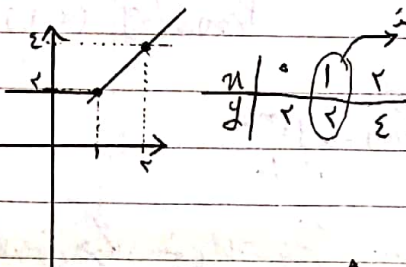 ٤
٢
١ ٢
x ٠ ١ ٢
y ٢ ٢ ٤